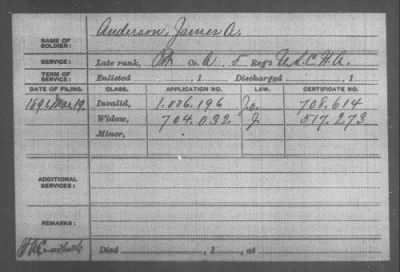 NAME OF SOLDIER: Anderson, James A.
SERVICE: Late rank, Co. A, 5 Reg't U.S.C.H.A.
TERM OF SERVICE: Enlisted , 1 Discharged , 1
DATE OF FILING. CLASS. APPLICATION NO. LAW. CERTIFICATE NO.
Mar. 19 Invalid, 1.036.196 708.614
Widow, 704.032 517.273
Minor,
ADDITIONAL SERVICES:
REMARKS:
Died , 1 , at